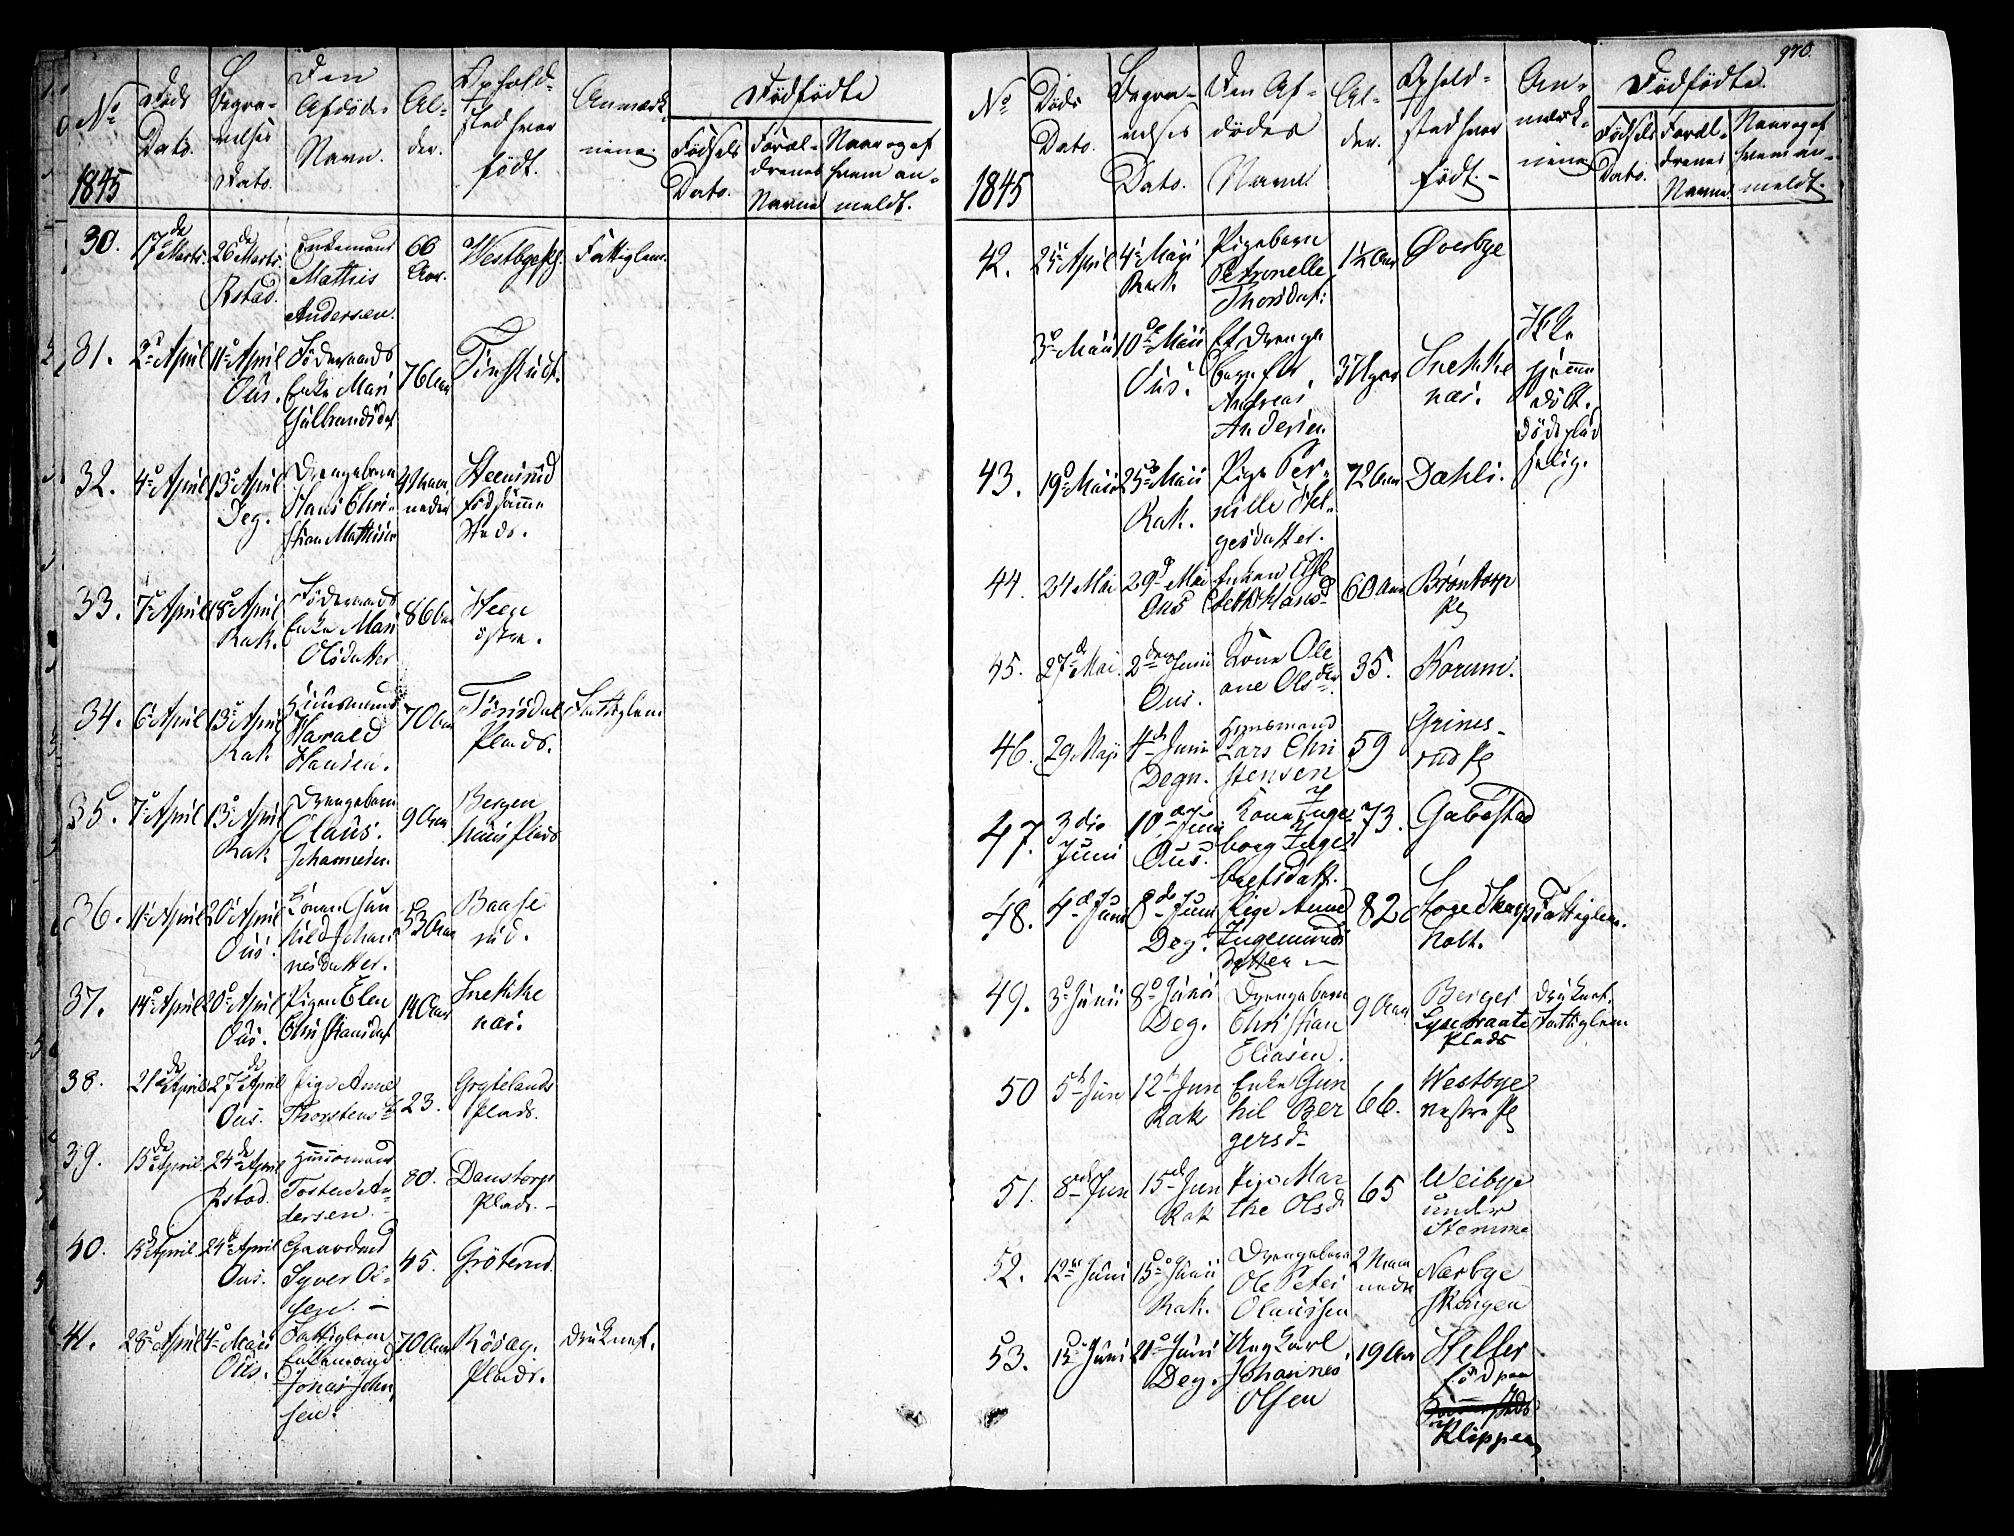 970.
No
1845
Døds
Dato.
Begra-
velses
Dato.
Den
Afdødes
Navn.
Al-
der.
Ophold-
sted hvor
født.
Anmærk-
ning.
Dødfødte
Fødsels
Dato.
Foræl-
drenes
Navne
Navn og af
hvem an-
meldt.
30.
17de Marts.
26de Marts
Rstad.
Enkemand
Mathis
Andersen.
66
Aar.
Westbye Pl.
Fattiglem.
31.
2d April
11d April
Ous.
Føderaads
Enke Mari
Gulbrandsdat
76 Aar
32.
4d April
13d April
Deg.
Drengebarn
Hans Chri-
stian Mathisen
4 Maa
neder
Heensrud
født samme
Steds.
33.
7d April
18d April
Rak.
Føderaads
Enke Mari
Olsdatter
86 Aar
Heen
østre.
34.
6d April
13d April
Rak.
Huusmand
Harald
Hansen.
70 Aar
Plads.
Fattiglem
35.
7d April
13d April
Rak
Drengebarn
Olaus.
Johannesen.
9 Aar
Bergen
huus Plads
36.
11d April
20d April
Ous.
Konen Gun
hild Johan
nesdatter.
53 Aar
Baase
rud.
37.
14d April
20d April
Ous.
Pigen Elen
Christiansdat
14 Aar
Snekke
næs.
38.
21de April
27de April
Ous.
Pige Anne
Thorstensd
23.
Grytelands
Plads.
39.
15de April
24de April
Rstad.
Huusmand
Tosten An-
dersen.
80.
Danstorps
Plads.
40.
15d April
24d April
Ous.
Gaardmd
Syver Ol-
sen.
45.
Grøterud
41.
28d April
4d Maii
Ous.
Fattiglem
Enkemand
Jonas John
sen.
70 Aar
Røsæg.
Plads.
Druknet.
No
1845
Døds
Dato.
Begra-
velses
Dato.
Den Af-
dødes
Navn.
Al-
der.
Ophold-
sted hvor
født.
An-
mærk-
ning
Dødfødte.
Fødsels
Dato.
Foræl-
drenes
Navne
Navn og af
hvem an-
meldt.
42.
25d April
4d Maji
Rak.
Pigebarn
Petronelle
Thorsdat:
1½ Aar
Ouebye
3d Maii
10de Maii
Ous.
Et Drenge
barn af
Andreas
Andersen
3 Uger
Snekke
næs.
Ikke
hjemme
døbt.
43.
19d Maii
25d Maii
Rak.
Pige Per-
nille Hel-
gesdatter.
72 Aar
Dahls.
44.
24 Mai
29d Mai
Ous
Enken Else
60 Aar
Brøntorp
Pl
45.
27d Mai.
2den Juni
Ous.
Kone Ole
ane Olsdr.
35.
Korum.
46.
29 Maji
4d Juni
Degn.
Huusmand
Lars Chri
stensen
59
Grines-
rud Pl
47.
3die
Juni
10de Juni
Ous.
Kone Inge
borg Inge
bretsdatt.
73.
Gabestad
48.
4d Juni
8de Juni
Deg.
Pige Anne
Ingemunds
datter
82
holt.
Fattiglem.
49.
3d Junii
8d Junii
Deg.
Drengebarn
Christian
Eliasen.
9 Aar
Berger
Lysebraate
Plads
Druknet.
Fattiglem
50
5d Jun
12d Jun
Rak
Enke Gun
hil Ber
gersd
66.
Westbye
vestre Pl
51.
8d Jun
15d Jun
Rak
Pige Mar
the Olsd
65
Weibye
under
Stemme
52.
12d Juni
15d Junii
Rak.
Drengebarn
Ole Peter
Olaussen
2 Maa
neder
Nærbye
skougen
53.
15d Juni
21d Juni
Deg.
Ung Karl
Johannes
Olsen
19 Aar
Heller
Fød paa
Klippen